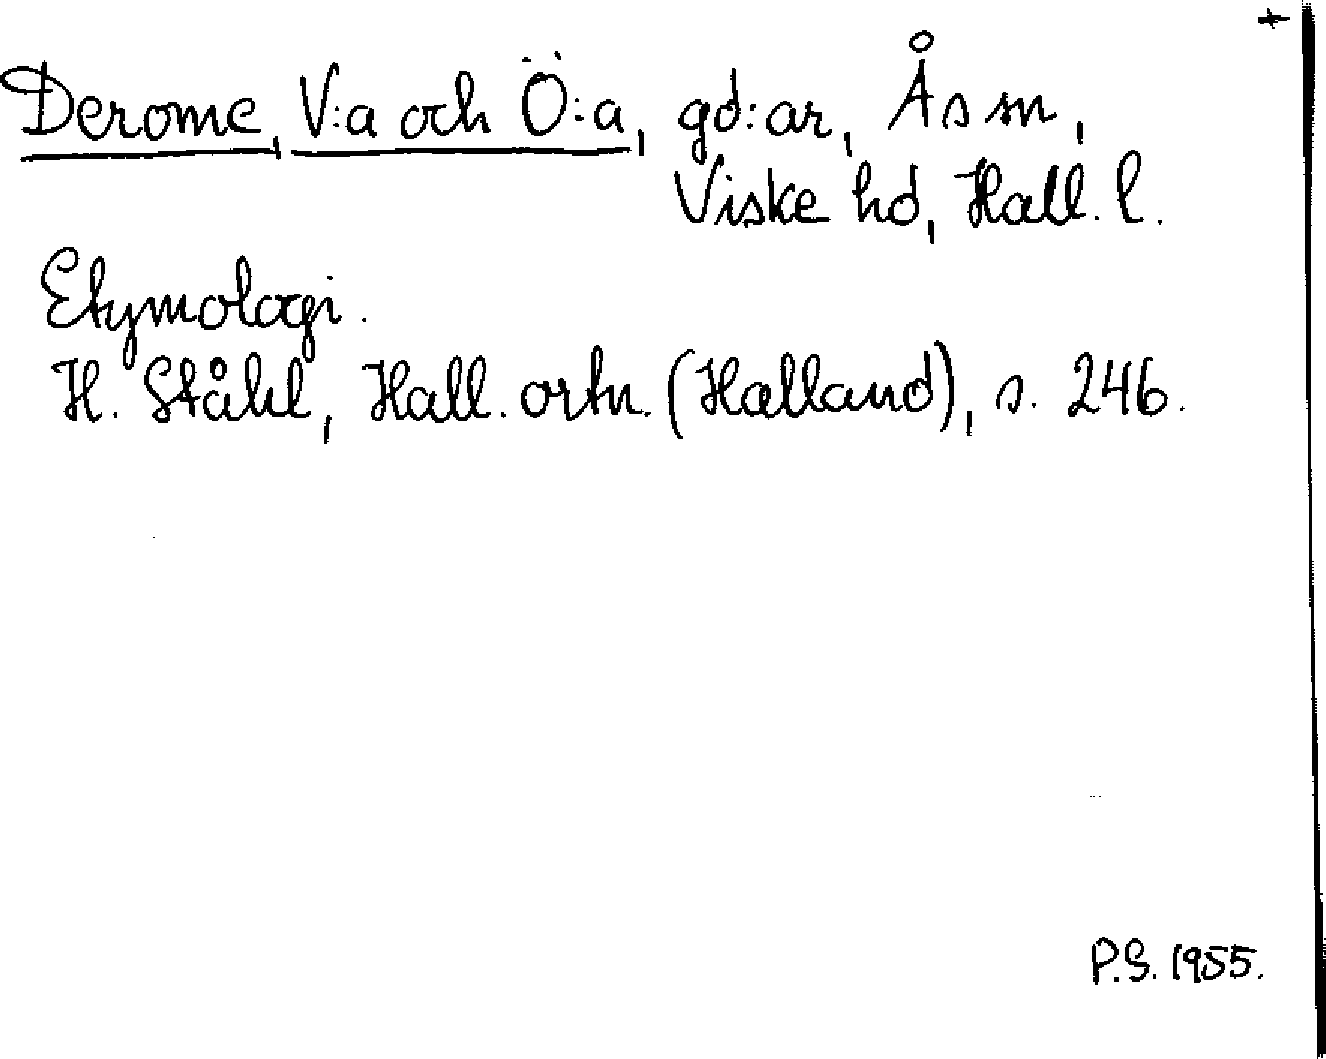 +
Derome, V:a och Ö:a, gd:ar, Ås sn,
Viske hd, Hall. l.
Etymologi.
H. Ståhl, Hall. ortn. (Halland), s. 246.
P.S. 1955.